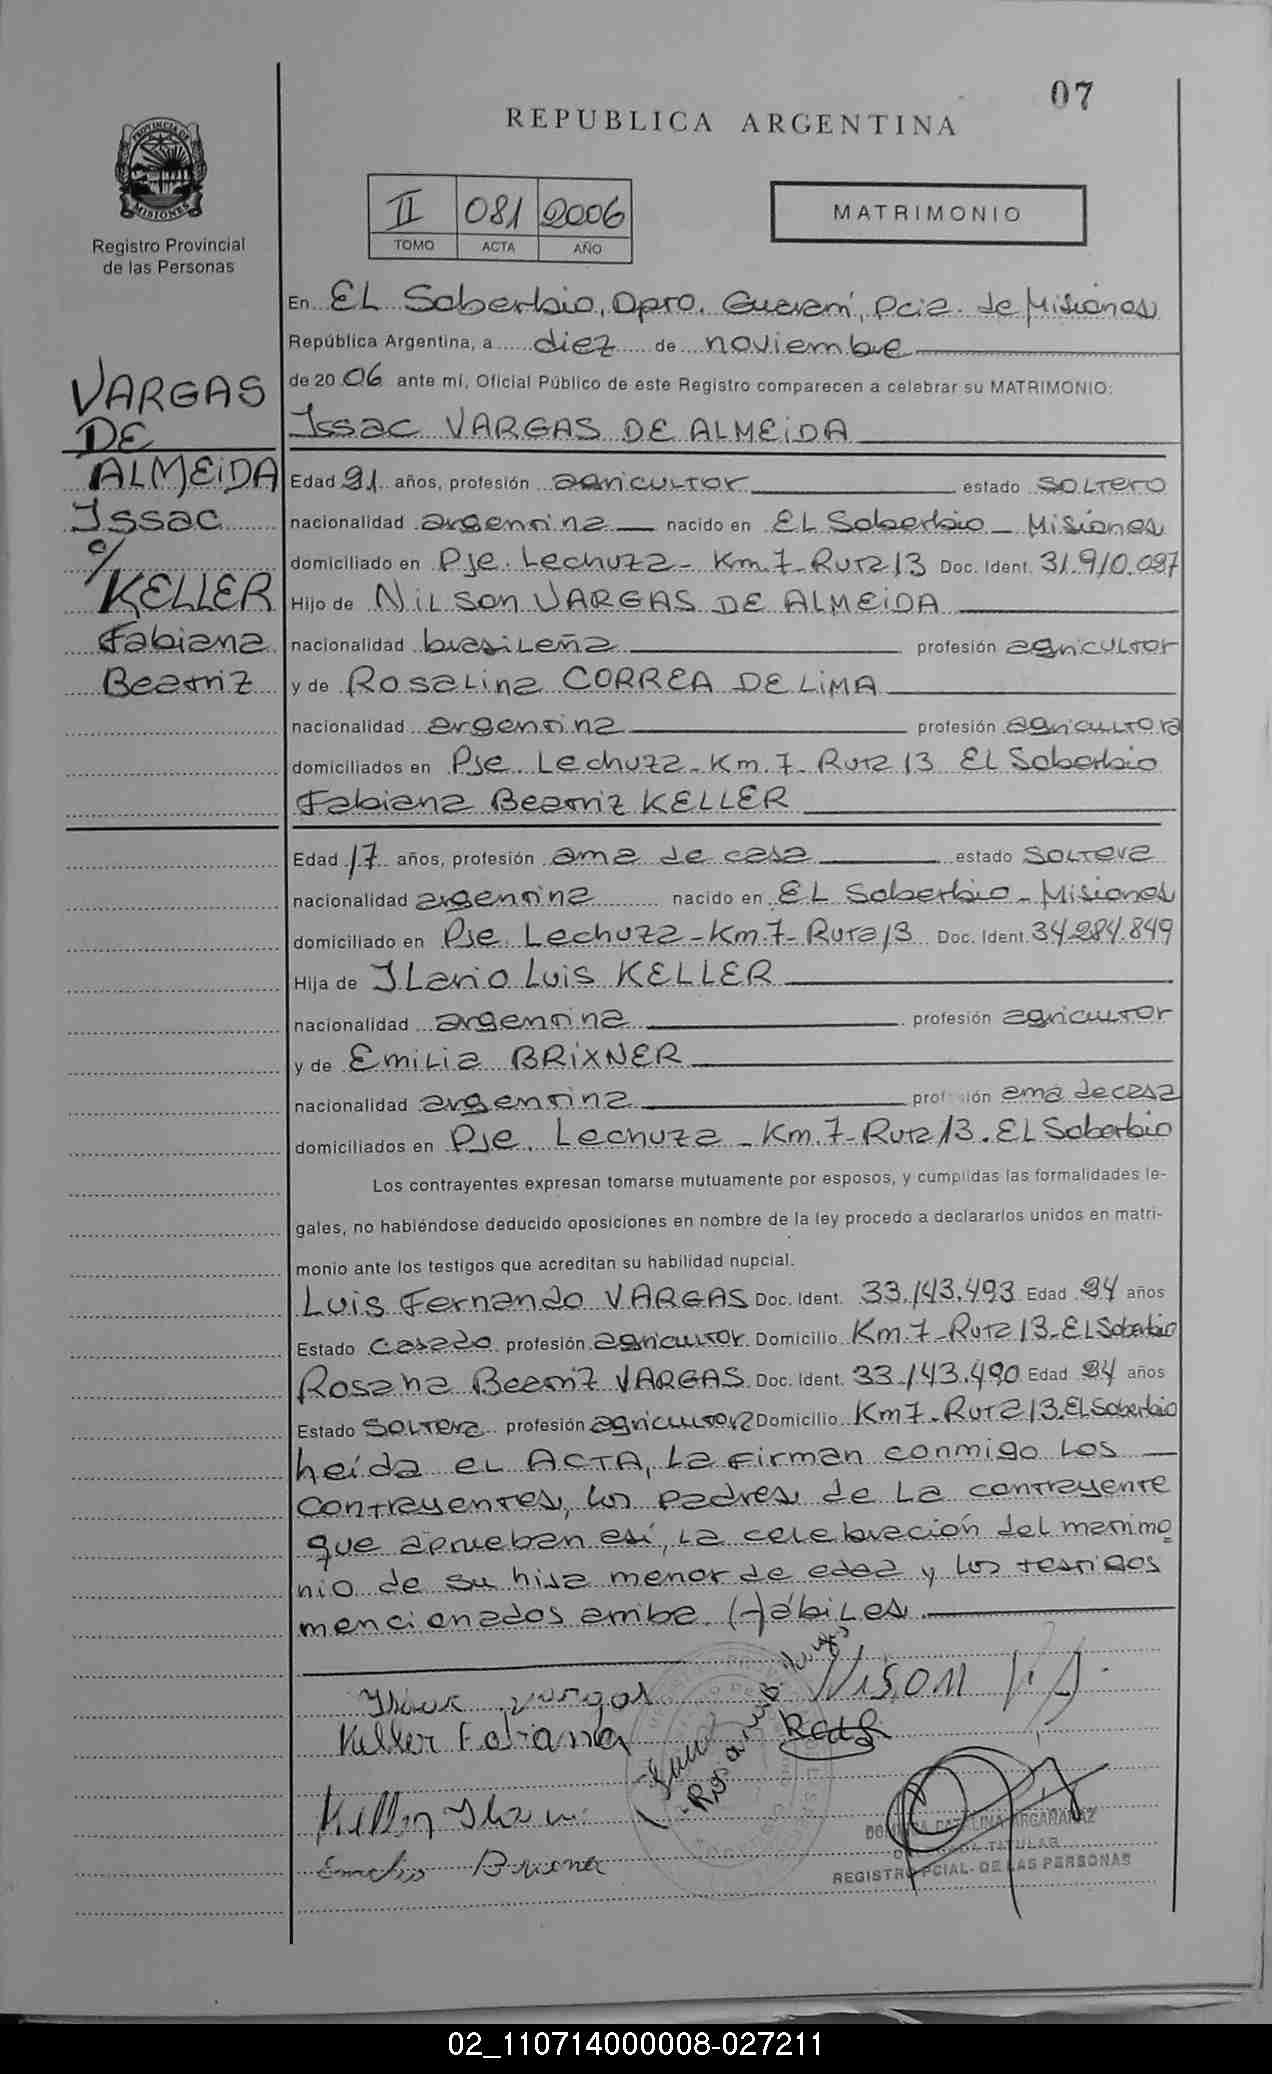 07
REPUBLICA ARGENTINA
PROVINCIA DE
MISIONES
Registro Provincial
de las Personas
II 081 2006
TOMO ACTA AÑO
MATRIMONIO
En EL Soberbio, Dpto. Guaraní, Pcia. de Misiones
República Argentina, a diez de noviembre
de 2006 ante mí, Oficial Público de este Registro comparecen a celebrar su MATRIMONIO:
Issac VARGAS DE ALMEIDA
VARGAS
DE
ALMEIDA
Issac
c/
KELLER
Fabiana
Beatriz
Edad 21 años, profesión agricultor estado soltero
nacionalidad argentina nacido en EL Soberbio - Misiones
domiciliado en Pje. Lechuza - Km. 7 - Ruta 13 Doc. Ident. 31.910.027
Hijo de NILSON VARGAS DE ALMEIDA
nacionalidad brasileña profesión agricultor
y de Rosalina CORREA DE LIMA
nacionalidad argentina profesión agricultora
domiciliados en Pje. Lechuza - Km. 7 - Ruta 13 EL Soberbio
Fabiana Beatriz KELLER
Edad 17 años, profesión ama de casa estado soltera
nacionalidad argentina nacido en EL Soberbio - Misiones
domiciliado en Pje. Lechuza - Km. 7 - Ruta 13 Doc. Ident. 34.284.849
Hija de ILario Luis KELLER
nacionalidad argentina profesión agricultor
y de Emilia BRIXNER
nacionalidad argentina profesión ama de casa
domiciliados en Pje. Lechuza - Km. 7 - Ruta 13. EL Soberbio
Los contrayentes expresan tomarse mutuamente por esposos, y cumplidas las formalidades le-
gales, no habiéndose deducido oposiciones en nombre de la ley procedo a declararlos unidos en matri-
monio ante los testigos que acreditan su habilidad nupcial.
Luis Fernando VARGAS Doc. Ident. 33.143.493 Edad 24 años
Estado casado profesión agricultor Domicilio Km. 7 - Ruta 13 - EL Soberbio
Rosana Beatriz VARGAS Doc. Ident. 33.143.490 Edad 24 años
Estado soltera profesión agricultora Domicilio Km 7 - Ruta 13. EL Soberbio
Leída el ACTA, la firman conmigo los
contrayentes, los padres de la contrayente
que aprueban así, la celebración del matrimo
nio de su hija menor de edad y los testigos
mencionados arriba Hábiles
Vargas
Keller Fabiana
Nison
Keller
REGISTRO PCIAL. DE LAS PERSONAS
02_110714000008-027211